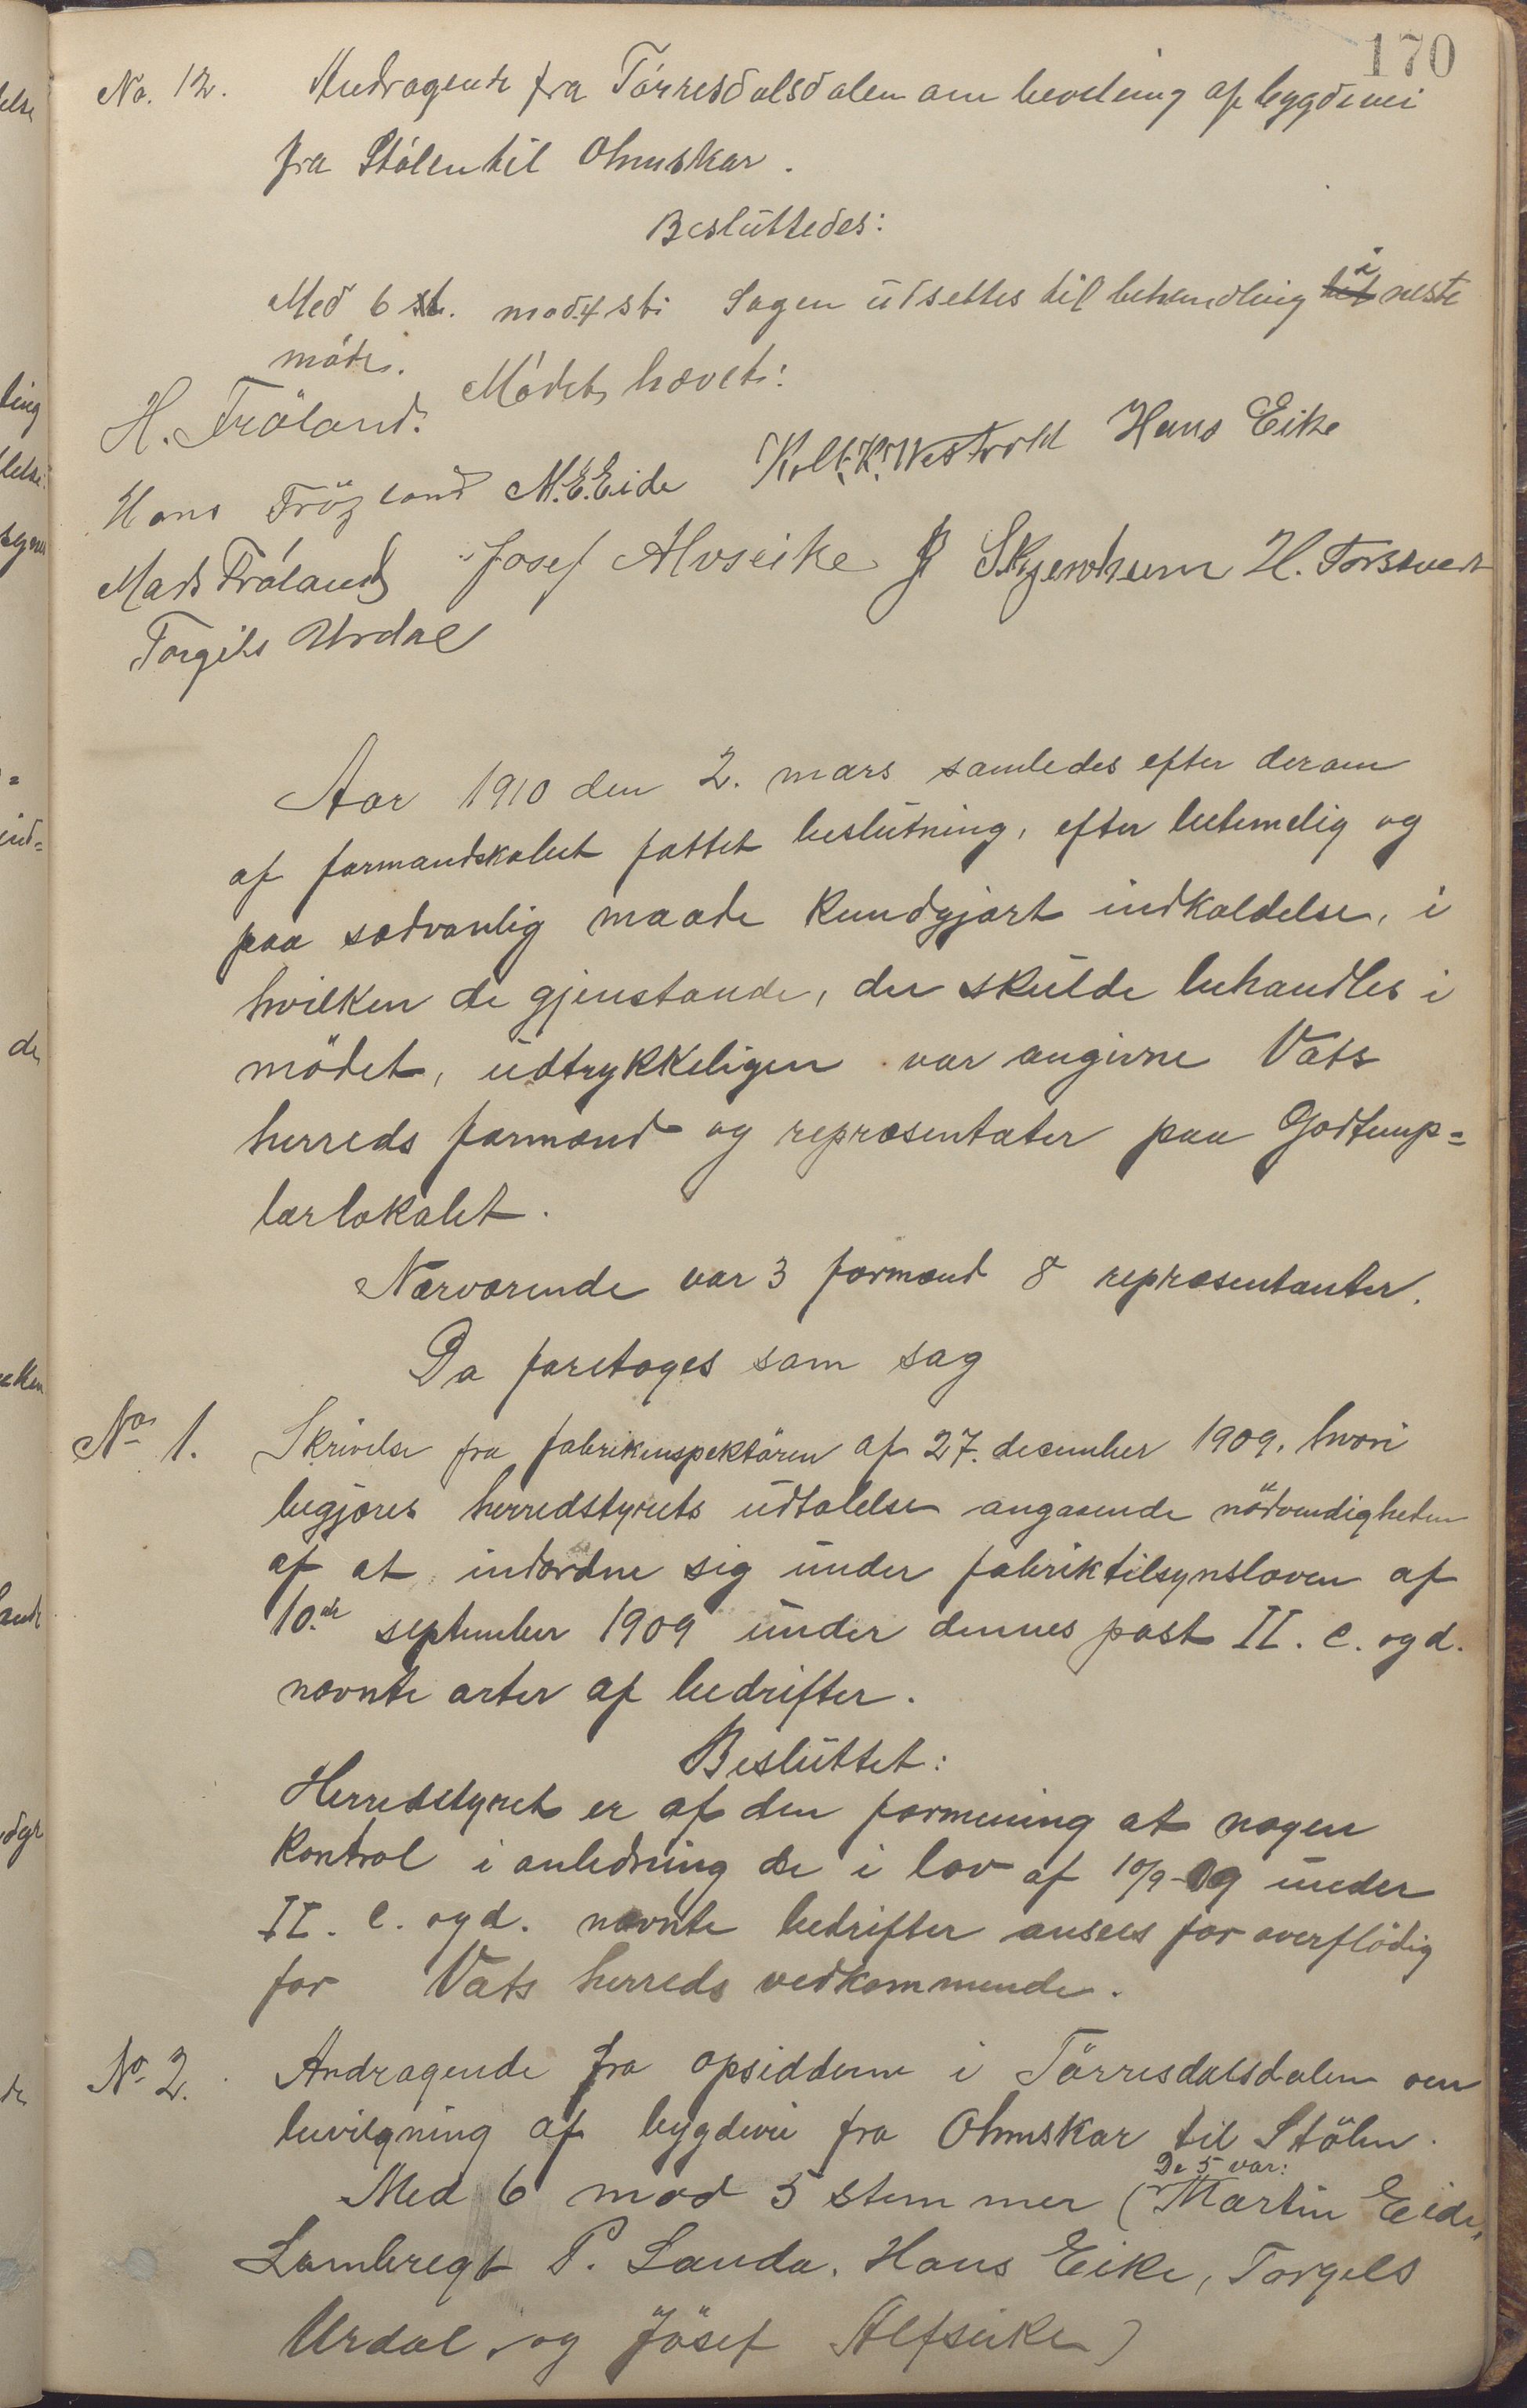 170
No. 12. Andragende fra Törresdalsdalen om bevilning af bygdevei
fra Stólen til Ohmskar.
Beslüttedes:
Med 6 st. mod 4 st: Sagen üdsettes til behandling i neste
móde.
Módet hævet:
H. Fröland.
Hans Eike
Hans Fröland M. E. Eide
Mads Fróland Josef Alvseike Skjenheim H. Torsvedt
Torgils Urdal
Aar 1910 den 2. mars samledes efter derom
af formandskabet fattet beslütning, efter betimelig og
paa sædvanlig maade kundgjort indkaldelse, i
hvilken de gjenstande, der skülde behandles i
mödet, üdtrykkeligen var angivne Vats
herreds formænd og repræsentater paa Godtemp=
larlokalet.
Nærværende var 3 formænd 8 repræsentanter.
Da foretoges som sag
No 1. Skrivelse fra fabrikinspektören af 27. december 1909, hvori
begjæres herredstyrets üdtalelse angaaende nödvendigheden
af at indordne sig ünder fabriktilsynsloven af
10.de september 1909 ünder dennes post II. c. og d.
nævnte arter af bedrifter.
Beslüttet:
Herredstyret er af den formening at nogen
kontrol i anledning de i lov af 10/9-09 ünder
II. c. og d. nævnte bedrifter ansees for overflödig
for Vats herreds vedkommende.
No 2. Andragende fra opsidderne i Törresdalsdalen om
bevilgning af bygdevei fra Ohmskar til Stölen.
Med 6 mod 5 stemmer (De 5 var: Martin Eide,
Lambregt P. Landa, Hans Eike, Torgels
Urdal og Jösef Alfseike)